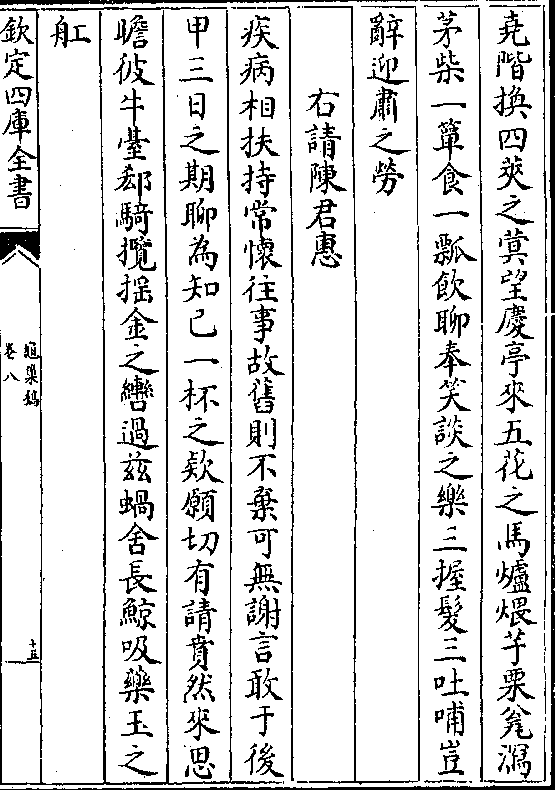 堯階換四莢之蓂望慶亭來五花之馬爐煨芋栗瓮瀉
茅柴一簞食一瓢飲聊奉笑談之樂三握髮三吐哺豈
辭迎肅之勞
右請陳君惠
疾病相扶持常懷往事故舊則不棄可無謝言敢于後
甲三日之期聊為知己一杯之欵願切有請賁然來思
瞻彼牛臺郄騎攬揺金之轡過兹蝸舍長鯨吸藥玉之
舡
欽定四庫全書
龜巢稿
卷八
十五